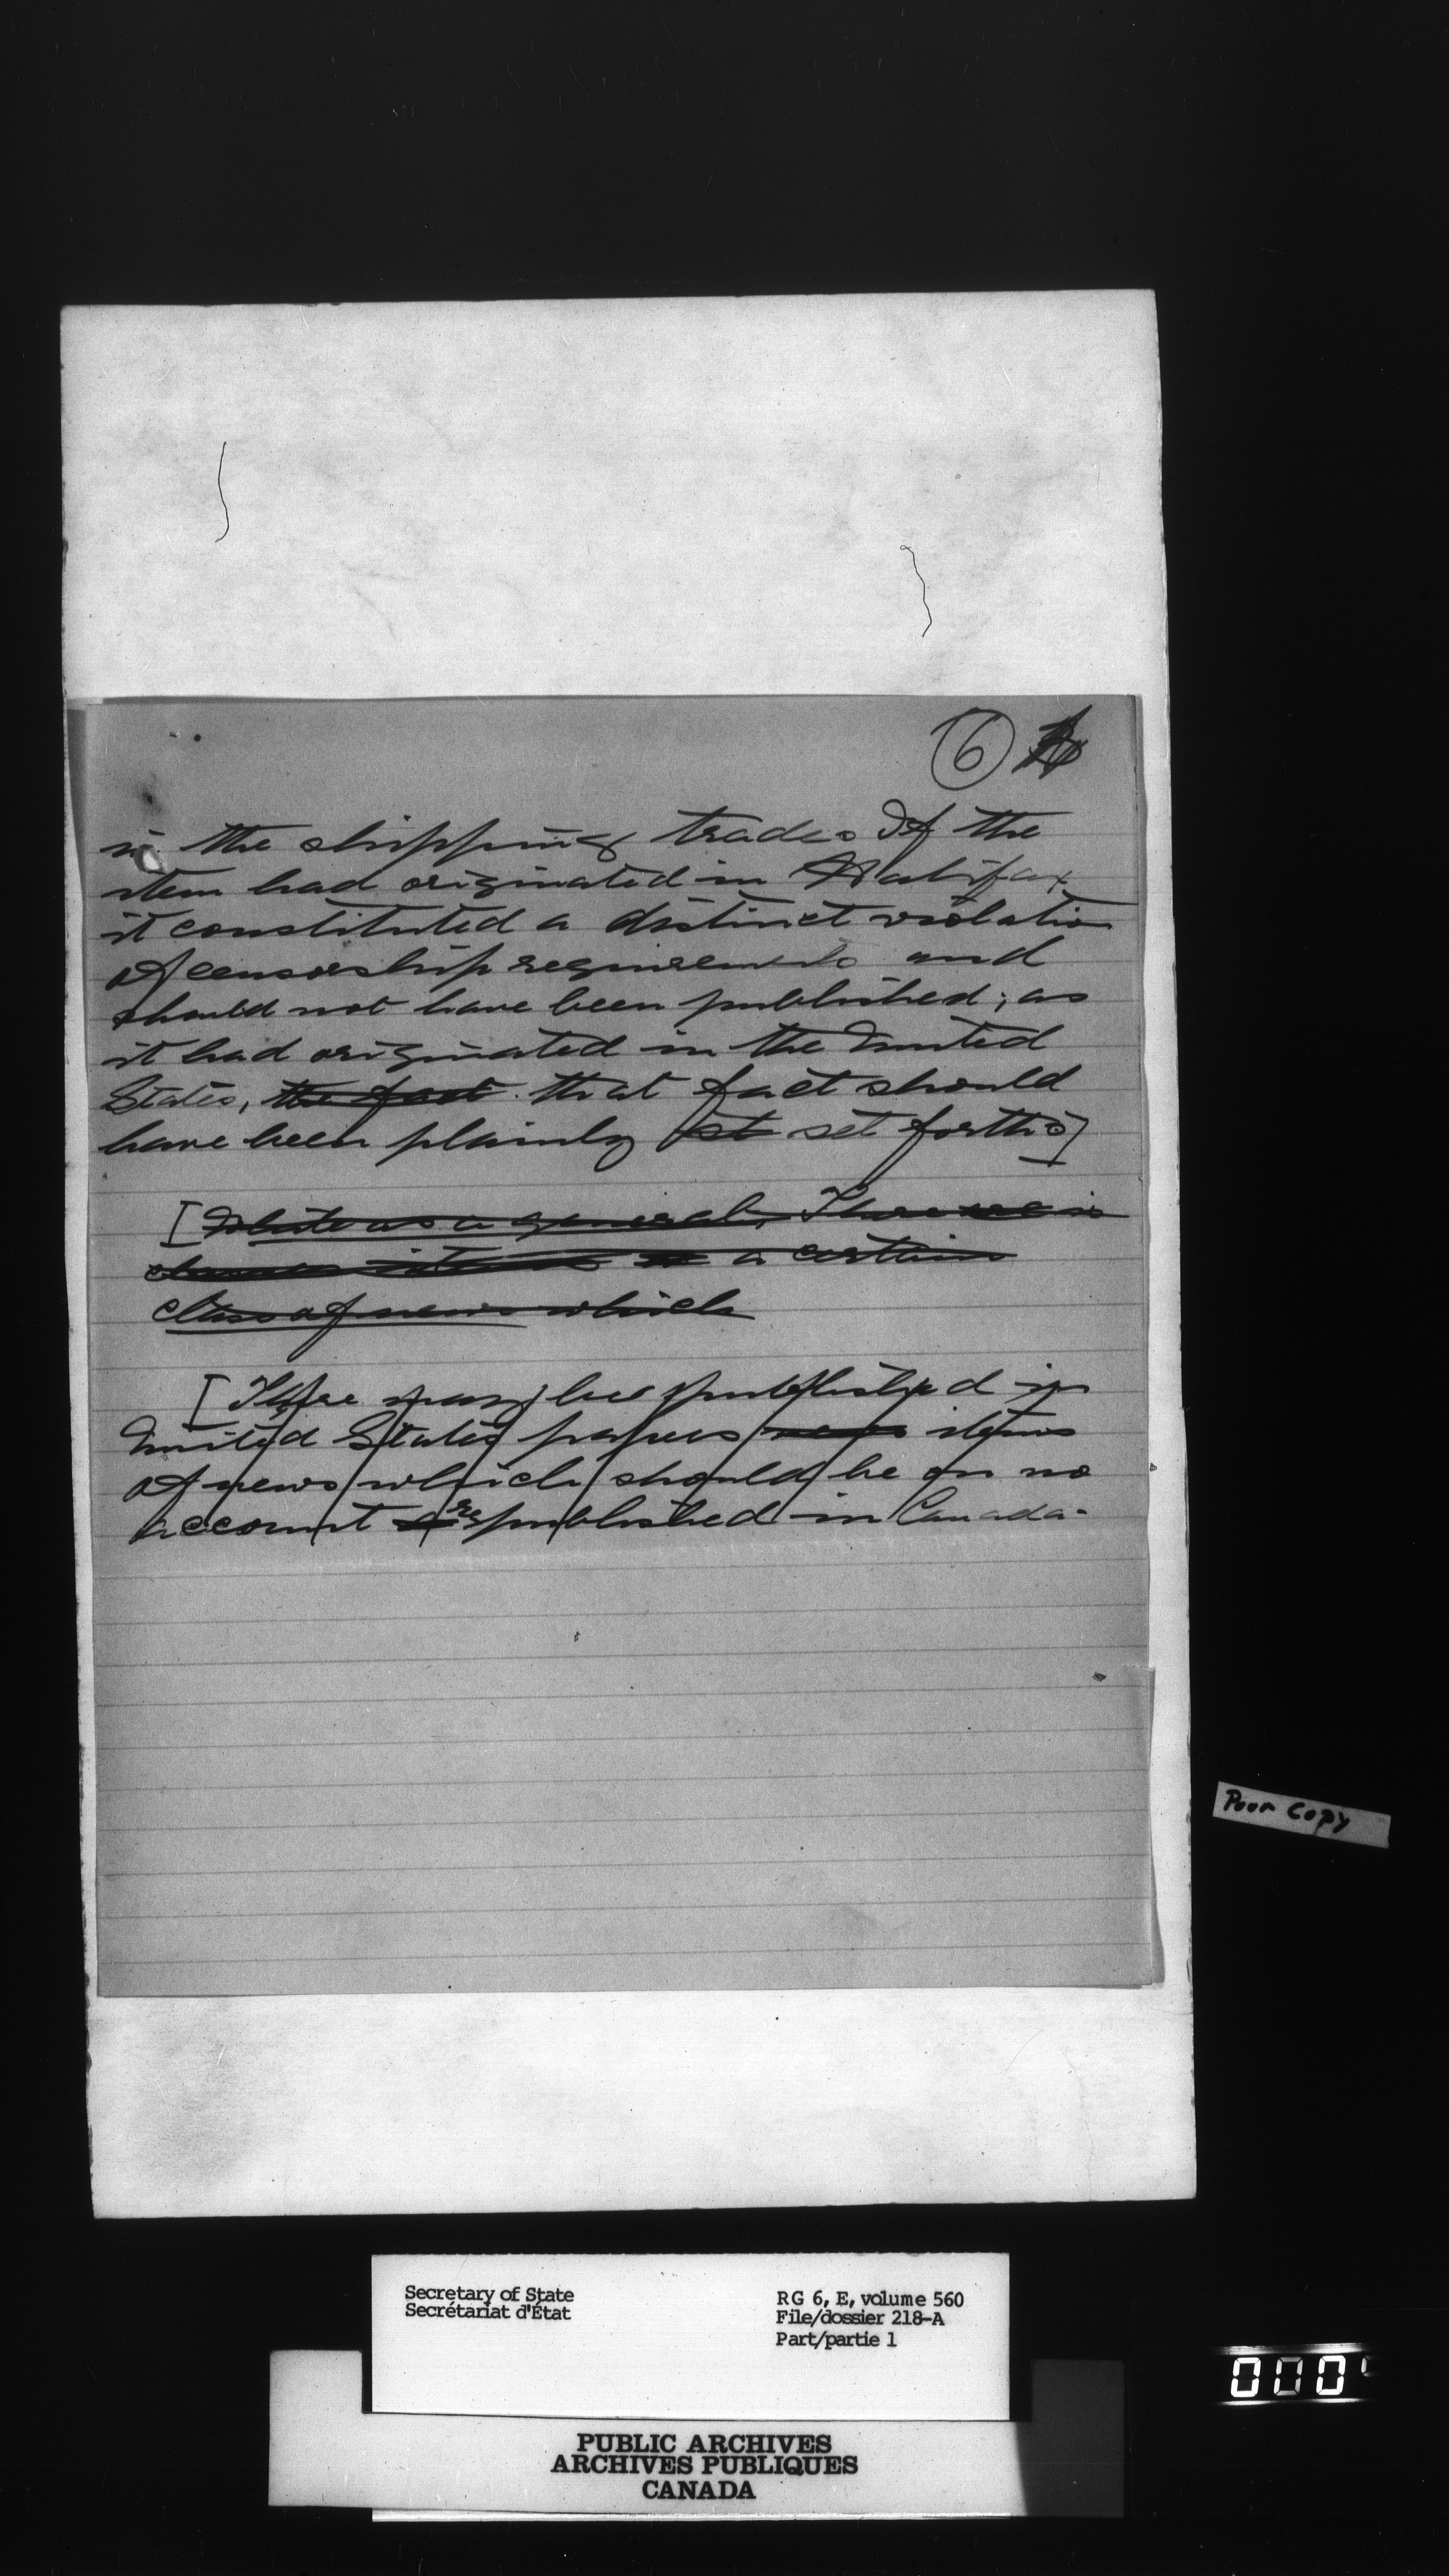 6
in the shipping trade. If the
item had originated in Halifax
it constituted a distinct violation
of censorship requirements and
should not have been published; as
it had originated in the United
States, the fact that fact should
have been plainly st set forth.]
[ as a general, There is
a certain
class of news which
[There may be published in
United States papers news items
of news which should be on no
account republished in Canada.
Poor Copy
Secretary of State
Secrétariat d'État
RG 6, E, volume 560
File/dossier 218-A
Part/partie 1
000
PUBLIC ARCHIVES
ARCHIVES PUBLIQUES
CANADA